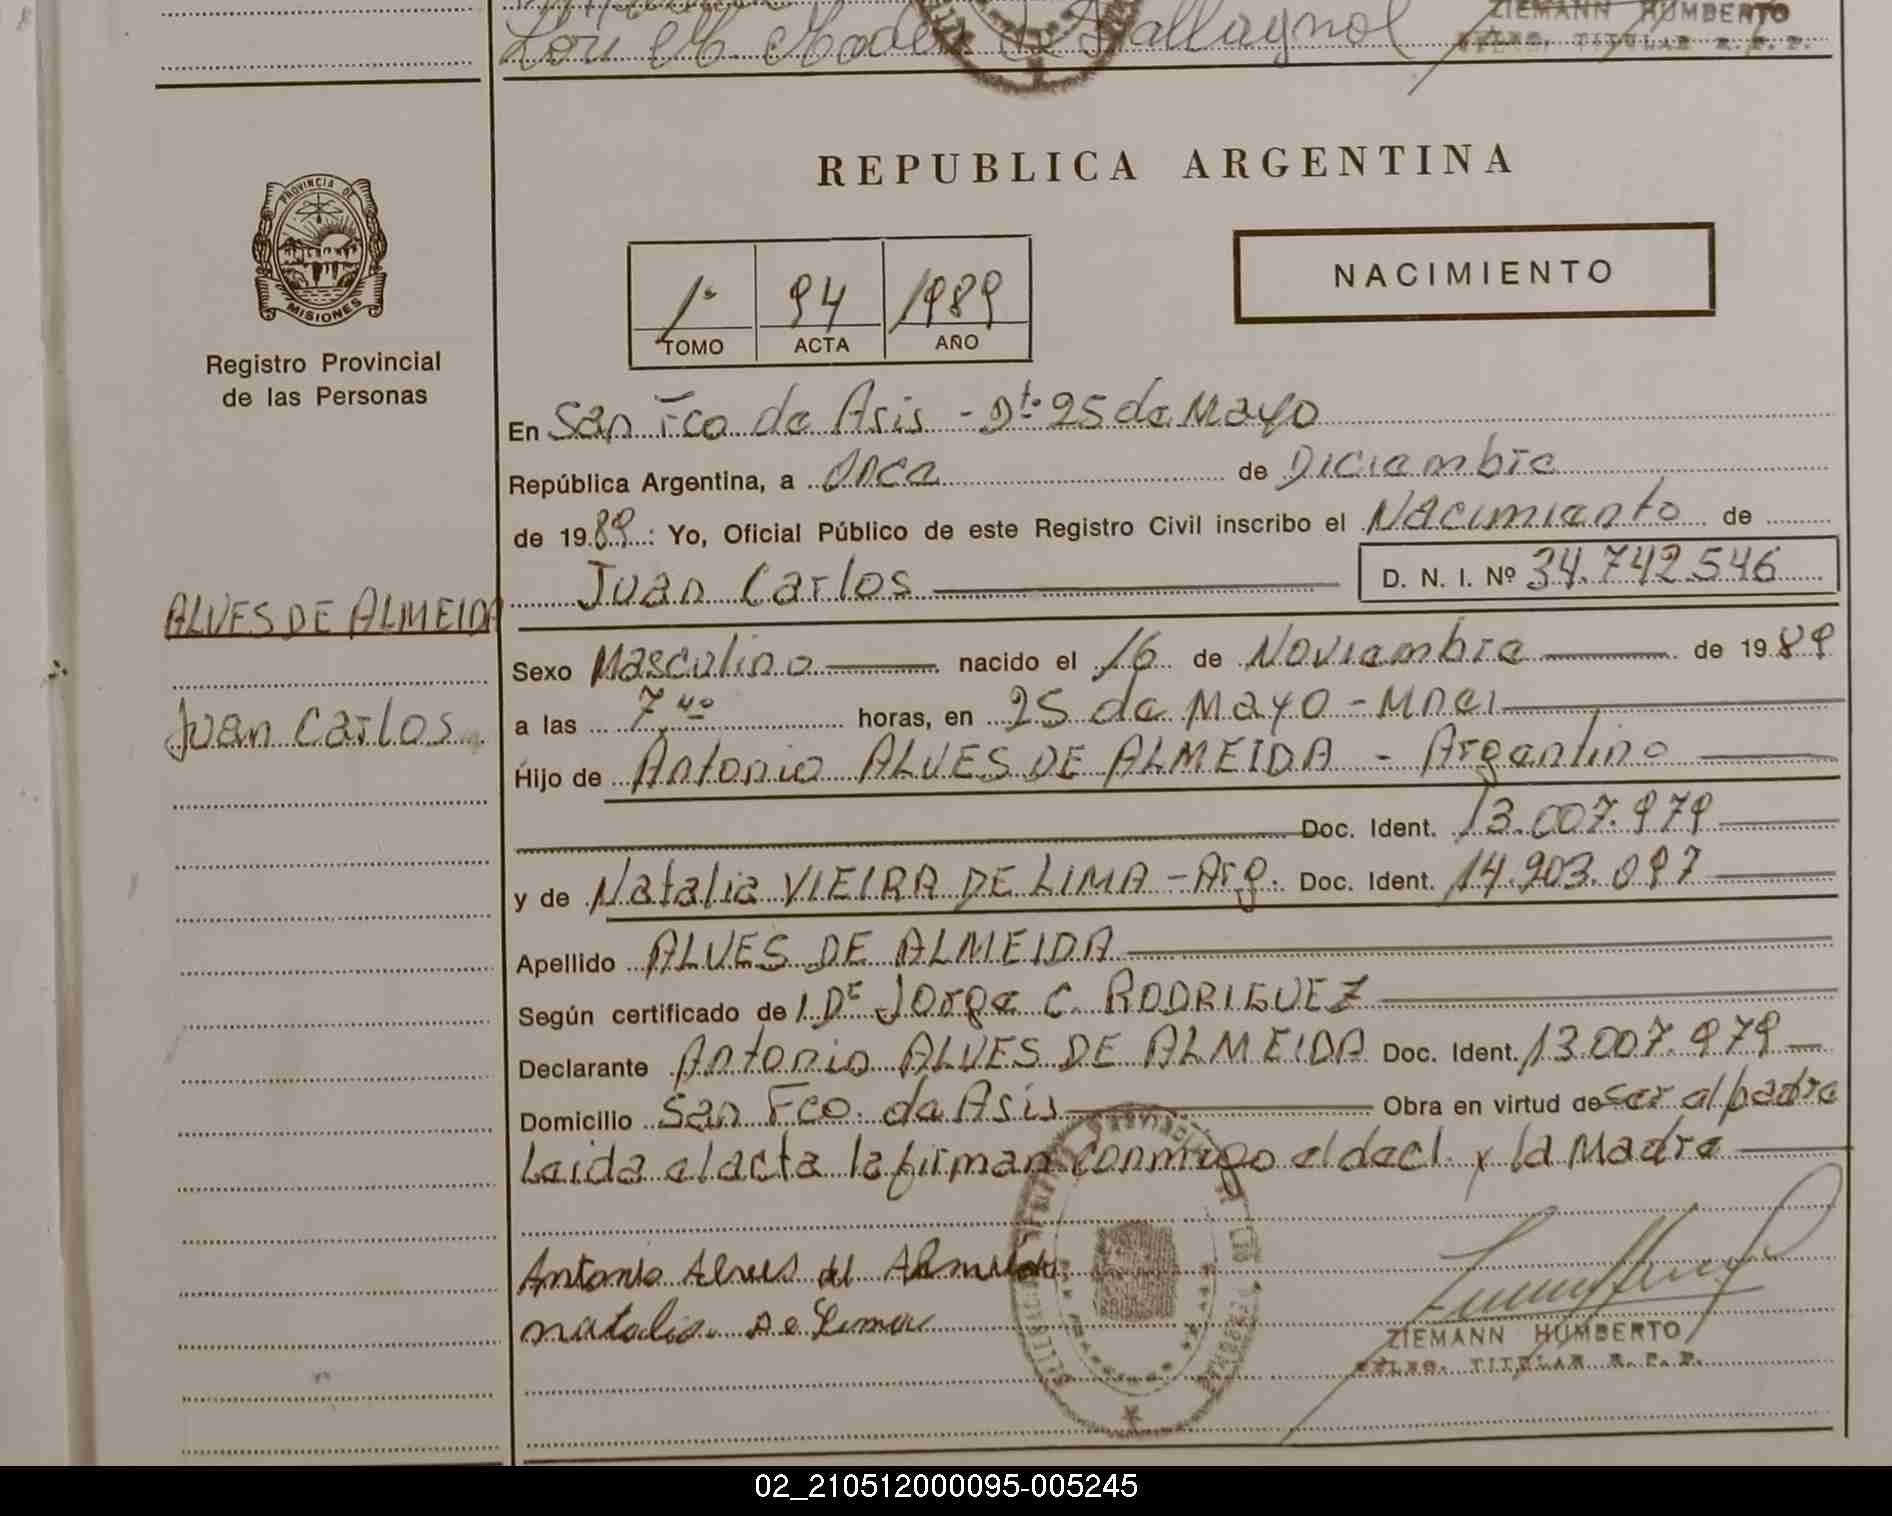 Lori M. de Dallagnol
ZIEMANN HUMBERTO
DELEG. TITULAR R. P. P.
REPUBLICA ARGENTINA
PROVINCIA DE
MISIONES
Registro Provincial
de las Personas
1° 94 1989
TOMO ACTA AÑO
NACIMIENTO
En San Fco de Asis - Dto 25 de Mayo
República Argentina, a Once de Diciembre
de 1989: Yo, Oficial Público de este Registro Civil inscribo el Nacimiento de
Juan Carlos D. N. I. Nº 34.742.546
ALVES DE ALMEIDA
Juan Carlos
Sexo Masculino nacido el 16 de Noviembre de 1989
a las 7 40 horas, en 25 de Mayo - Mnes
Hijo de Antonio ALVES DE ALMEIDA - Argentino
Doc. Ident. 13.007.979
y de Natalia VIEIRA DE LIMA - Arg. Doc. Ident. 14.903.097
Apellido ALVES DE ALMEIDA
Según certificado de 1 Dr Jorge C. RODRIGUEZ
Declarante Antonio ALVES DE ALMEIDA Doc. Ident. 13.007.979
Domicilio San Fco. de Asis Obra en virtud de ser el padre
Leida el acta la firman conmigo el decl. y la Madre
Antonio Alves de Almeida
natalia De Lima
ZIEMANN HUMBERTO
DELEG. TITULAR R. P. P.
02_210512000095-005245